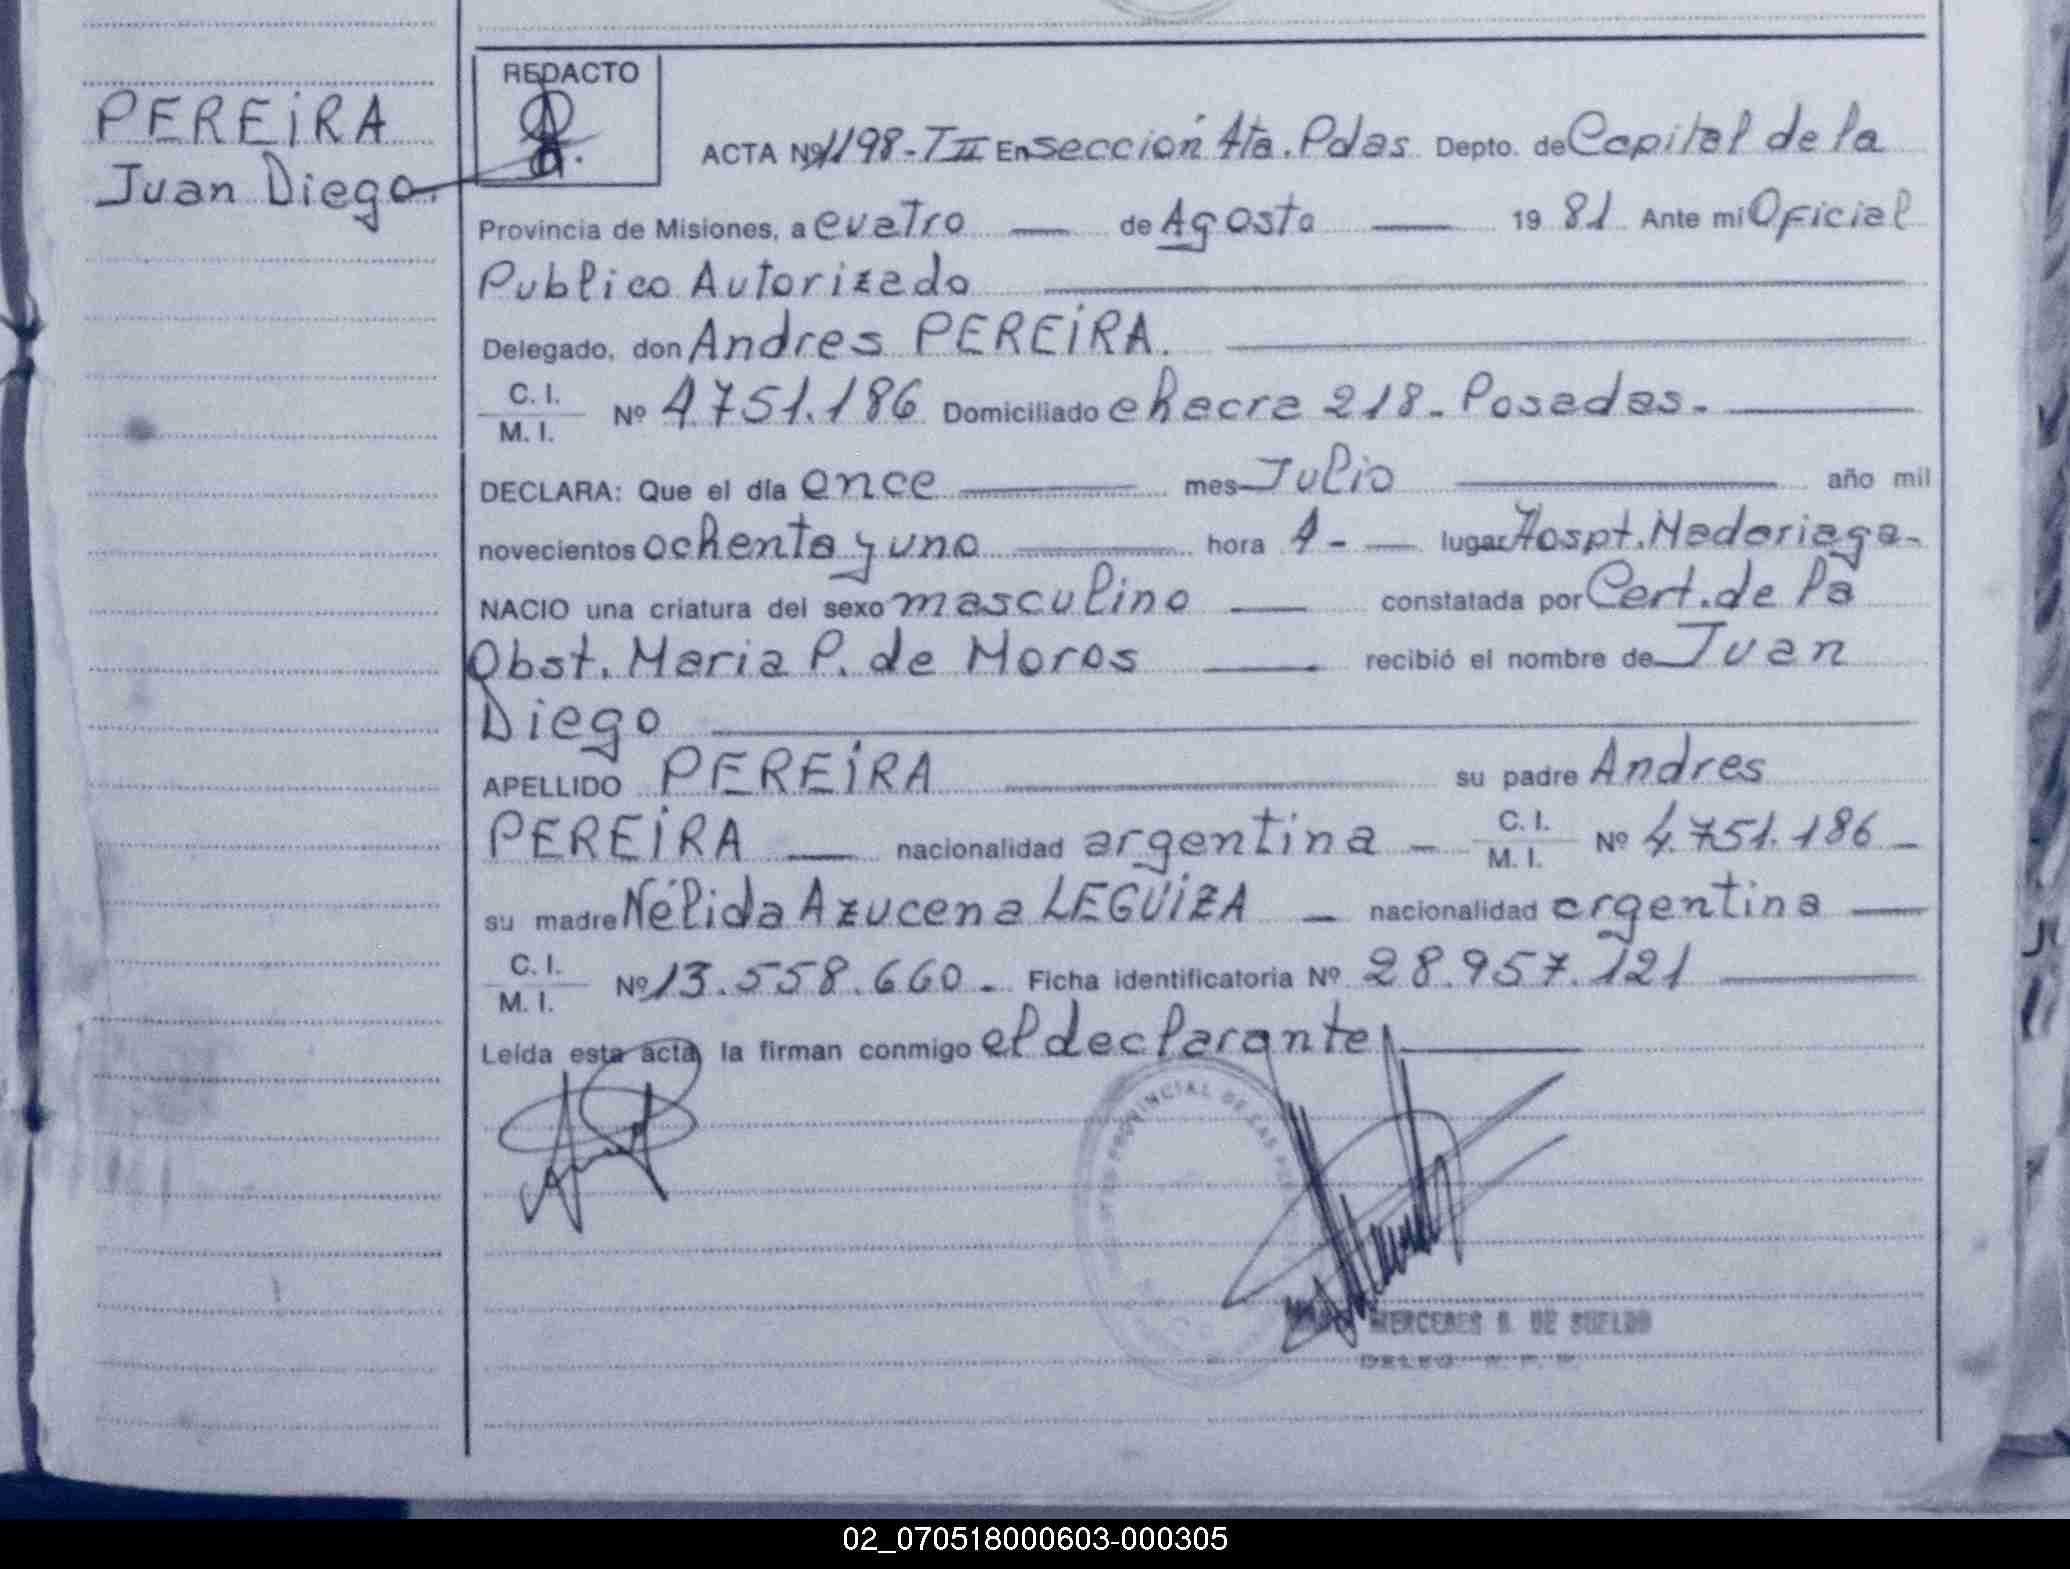 PEREiRA
Juan Diego.
REDACTO
ACTA Nº 1198-TII En sección 4ta. Pdas Depto. de Capital de la
Provincia de Misiones, a cuatro de Agosto 1981 Ante mi Oficial
Publico Autorizado
Delegado, don Andres PEREiRA.
C. I.
M. I. Nº 4751.186 Domiciliado chacra 218. Posadas.
DECLARA: Que el día once mes Julio año mil
novecientos ochenta y uno hora 4- lugar Hospt. Madariaga-
NACIO una criatura del sexo masculino constatada por Cert. de la
Obst. Maria P. de Moros recibió el nombre de Juan
Diego
APELLIDO PEREiRA su padre Andres
PEREiRA nacionalidad argentina - C. I. M. I. Nº 4.751.186 -
su madre Nélida Azucena LEGUiZA - nacionalidad argentina
C. I.
M. I. Nº 13.558.660. Ficha identificatoria Nº 28.957.121
Leída esta acta, la firman conmigo el declarante
PROVINCIAL DE LAS
MERCEDES DE SUELDO
02_070518000603-000305